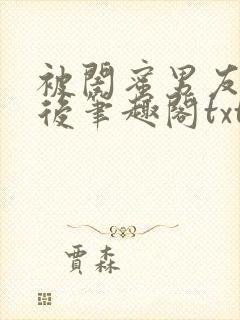 被閨蜜男友
後筆趣閣txt
賈森